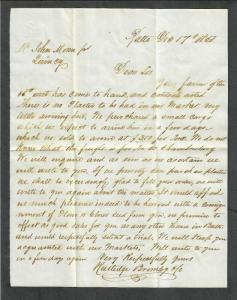 Balto Dec 17th 1861
Mr John Mann Jr
Quincy
Dear Sir
Your favor of the
16th inst has come to hand, and contents noted
There is no Plaster to be had in our Market very
little coming in. We purchased a small cargo
which we expect to arrive in a few days
which we will be to at $ per Ton. We do not
know what the freight is from here to Chambersburg
We will enquire and as soon as we ascertain we
will write to you. If we possibly can purchase plaster
we shall be exceedingly glad to fill your order, and will
write to you again about the matter. It would afford us
much pleasure indeed to be favored with a consign-
ment of Flour or Clover Seed from you, we promise to
effect as good sales for you as any other House in Balto.
and would respectfully solicit a trial. We will keep you
acquainted with our Markets, will write to you
in a few days again
Very Respectfully yours
Rutledge